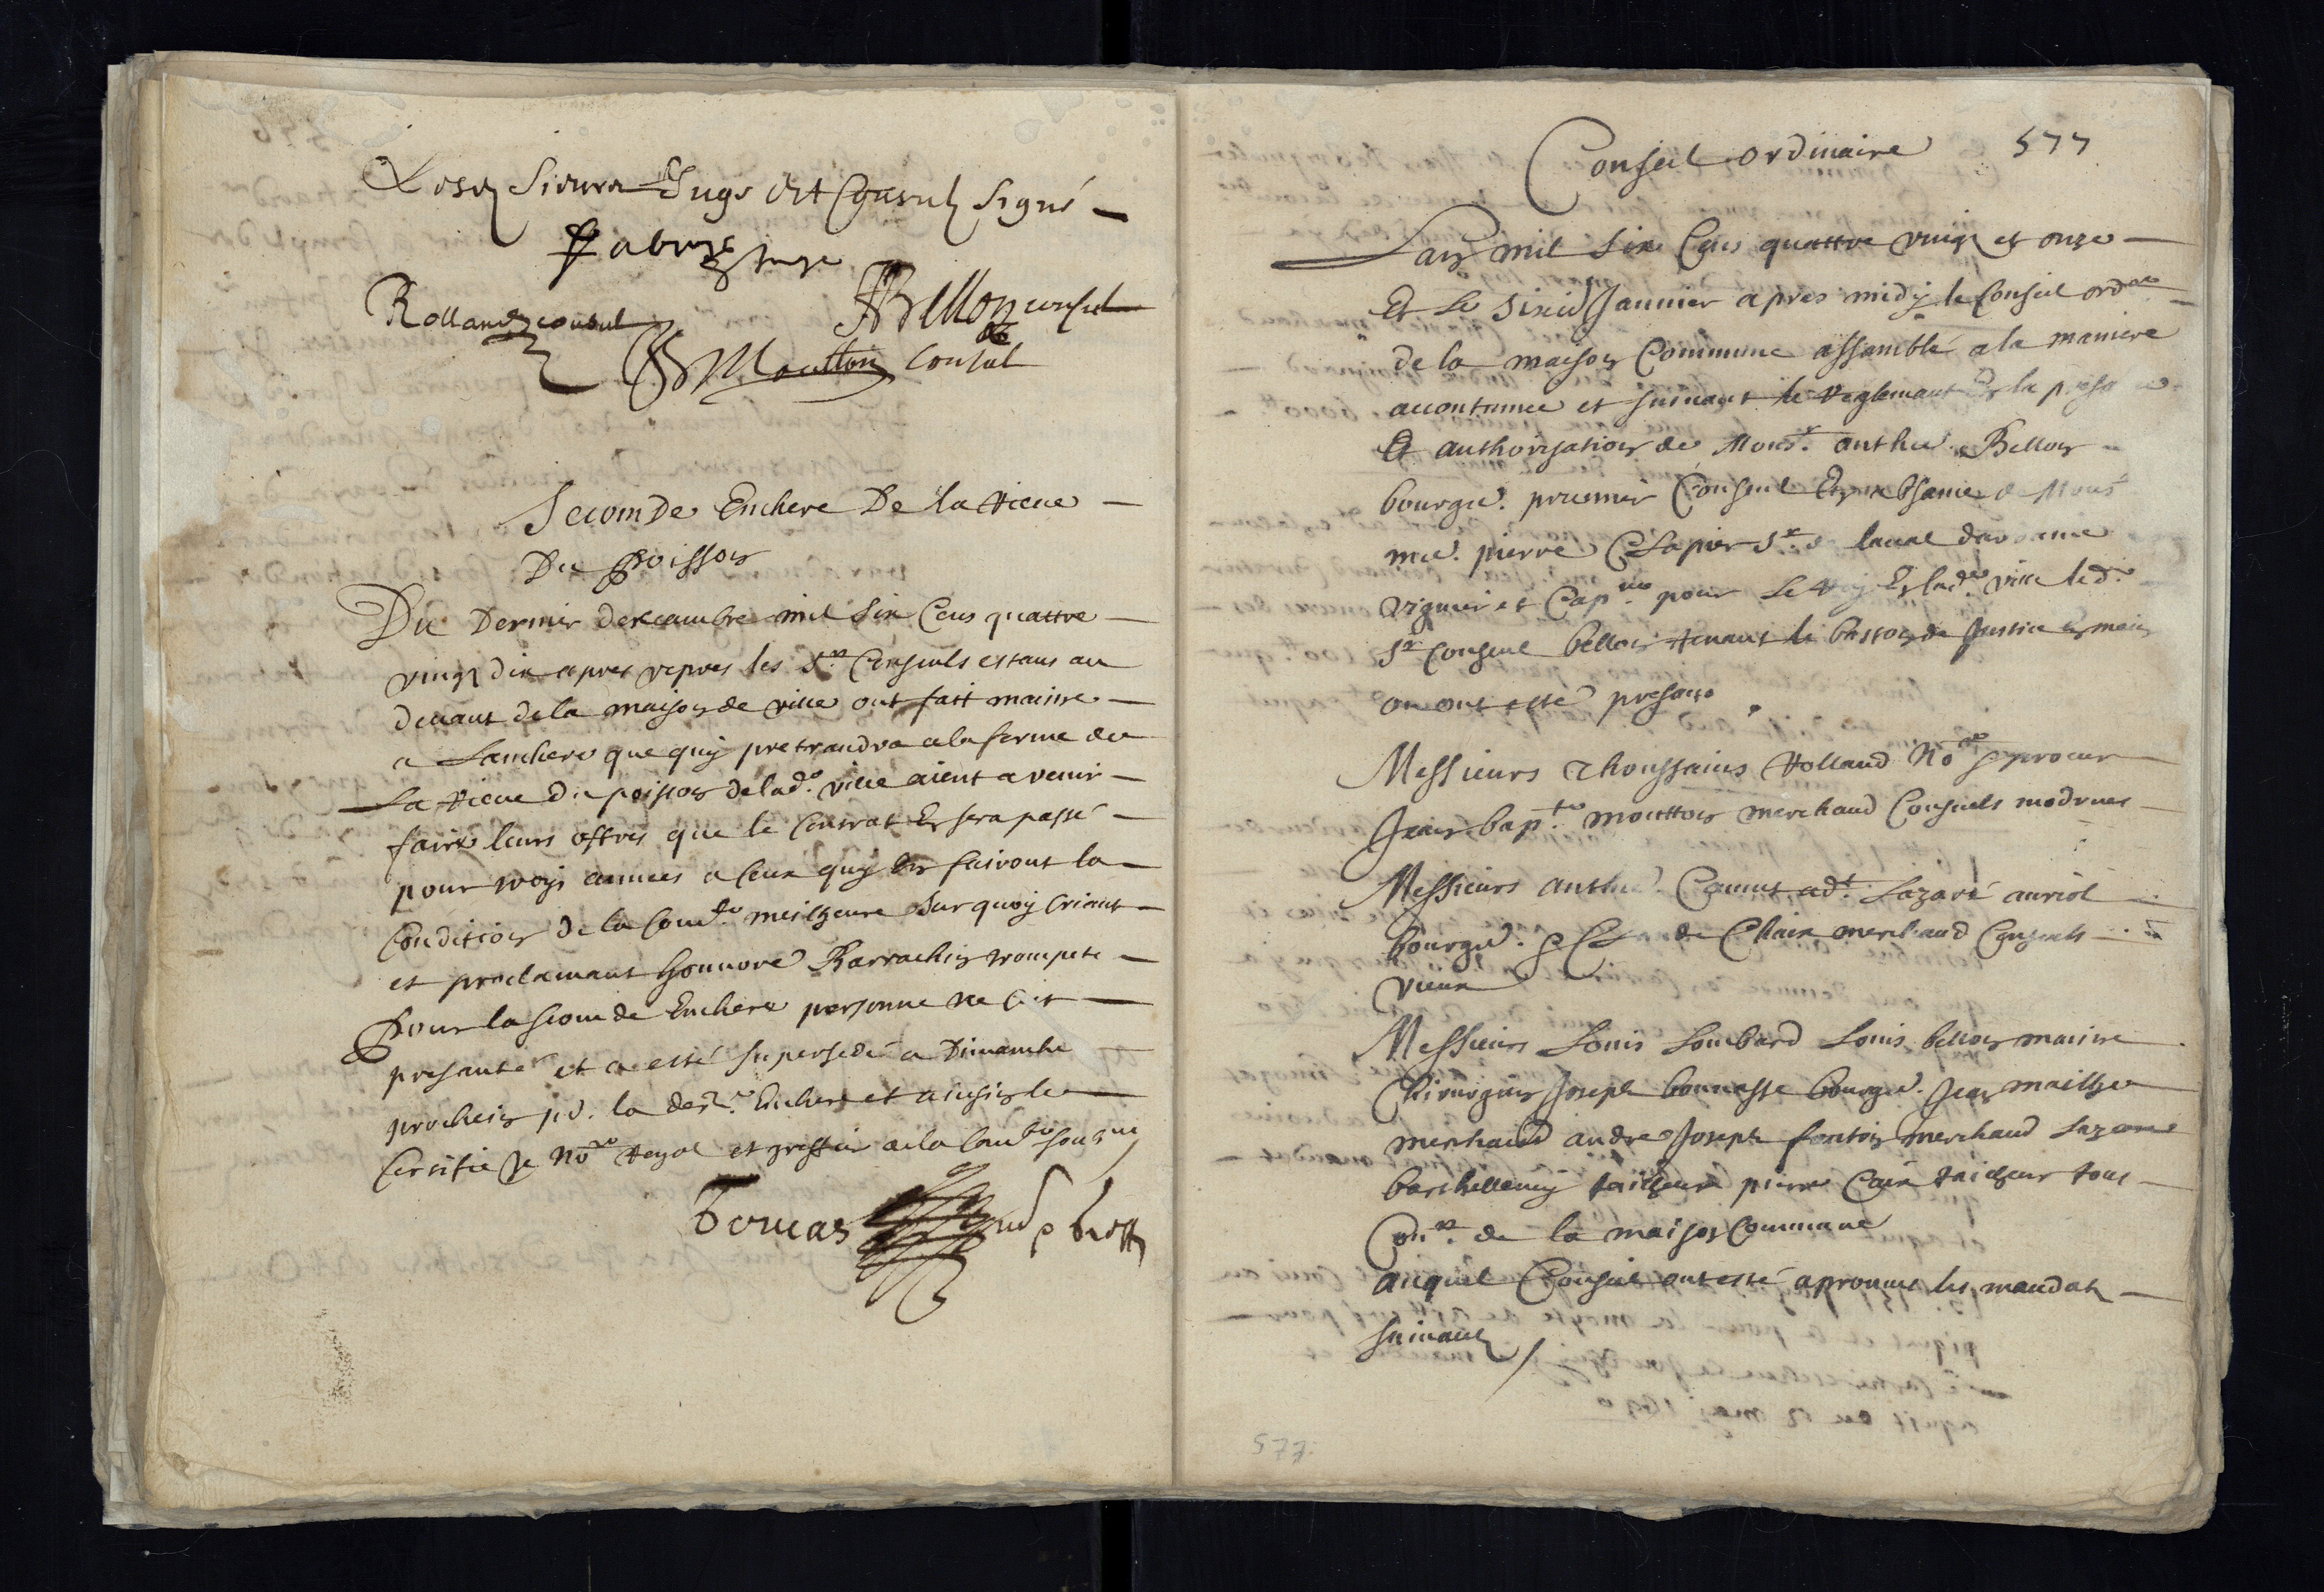 Lesdz Sieurs Juge Et Consulz Signé
Fabre Juge
Rolland consul
ABellon consul
JB Moutton Consul
Seconde Enchere De la Reue
Du Poissor
Du Dernier dexcambre mil Six Cens quattre
vingz dix apres vepres les Srs Conseuls estans au
deuant de la maison de ville ont fait maitre
a Lanchere que quy pretrandra a la ferme de
La Reue du poisson de lad. ville aient a venir
faire leurs offres que le Contrat En sera passé
pour troys annees a ceux quy En fairont la
Condition de la Comte meilheure Sur quoy Criant
et proclamant honnore Barrachin trompete
Pour la seconde Enchere personne ne sest
presanté et a esté supersedé a Dimanche
prochein pr. la dere. Enchere et ainsin le
Certifie Je Nore Royal et greffier de la Comte soubne
Toucas
Conseil ordinaire 577
Lan mil Six Cens quattre vingz et onze
Et Le Six Januier apres midy le Conseil ordre
de la maison Commune assamblé a la maniere
accoutumee et suiuant le reglemant En la presance
Et authorization de Monsr. anthe. Bellon
bourgs. premier Conseul En absance de Monsr
me. pierre Clapier Sr de laual dardanne
viguier et Capne pour Le Roy En lad. ville led.
Sr Conseul bellon tenant le baston de Justice En main
ou ont esté presans
Messieurs Thoussains Rolland Nore procur
Jean bapte. moutton merchand Conseuls modrnes
Messieurs anthe. Camus adt. Lazare auriol
bourgs. de Clair merchand Conseuls
vieux
Messieurs Louis Lombard Louis bellon maitre
Chirurgien Joseph bonnasse bourgs. Jean meilhe
merchand andre Joseph fontin merchand Lazare
barthellemy tailheur pierre Caire tailheur tous
Conrs. de la maison Commune
auquel Conseil ont esté aprouues les mandatz
suiuantz
577